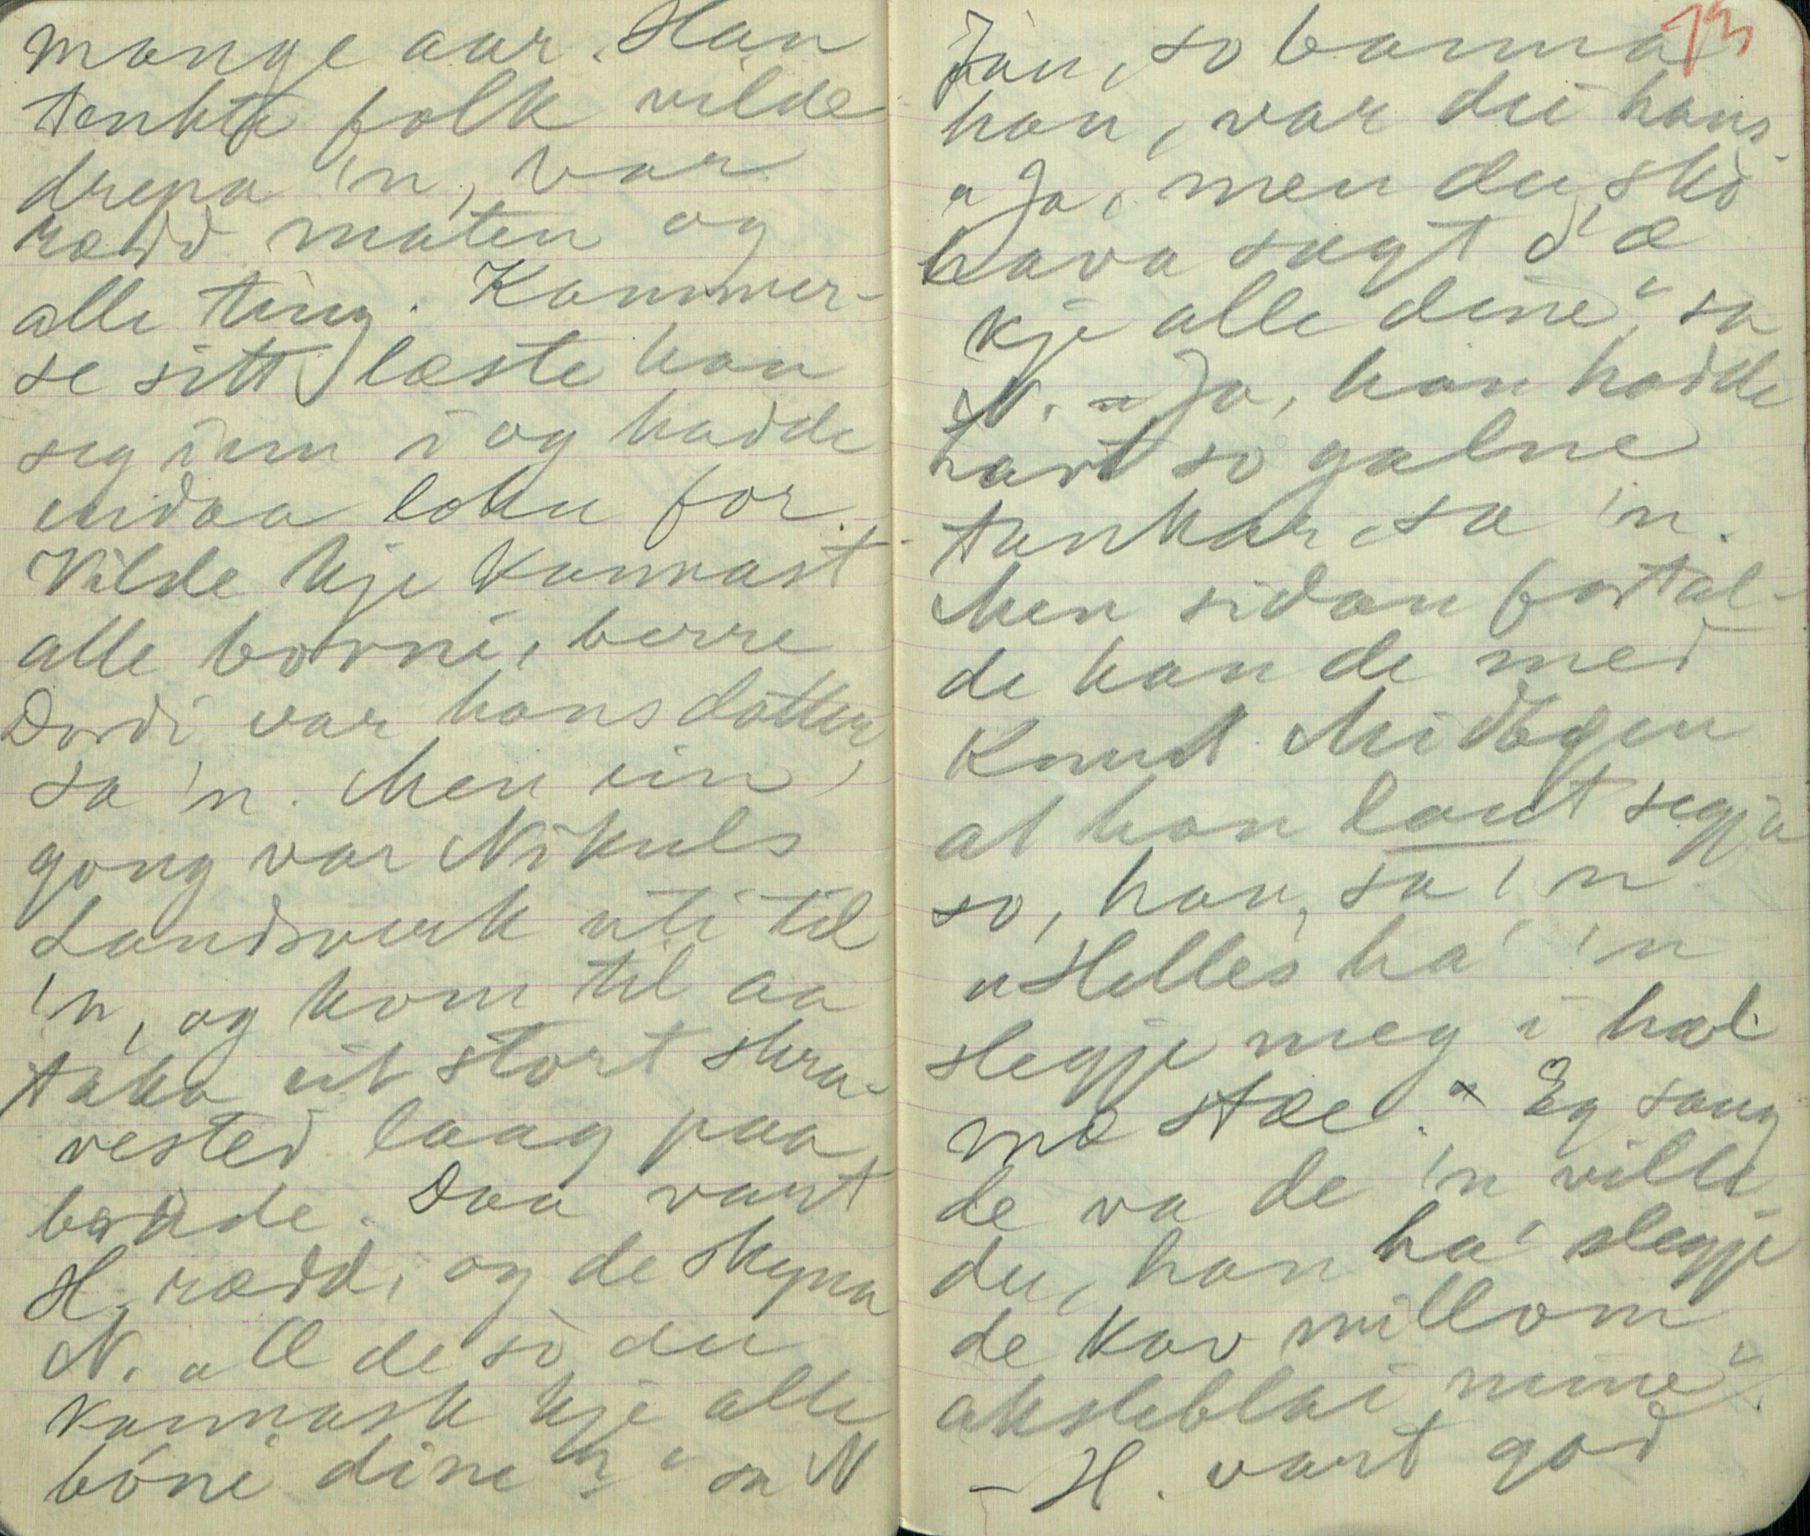 mange aar. Han
tenkte folk vilde
drepa 'n, var
rædd maten og
alle ting. Kammer-
se sitt læste han
seg inn i og hadde
endaa loku for.
Vilde kje kannast
alle borni, berre
Dordi var hans dotter,
sa 'n. Men ein
gong var Nikuls
Landsverk uti til
'n, og kom til aa
taka eit stort skra-
vested laag paa
borde. Daa vart
H. rædd, og de skyna
N. "Æ de so du
kannask kje alle
bóni dine?" sa N
13
Jau, so banna
han, var dei hans.
"Ja, men du sko
hava sagt d'æ
kje alle dine", sa
N. "Ja, han hadde
havt so galne
tankar, sa 'n.
Men sidan fortal-
de han de med
Knut Midbøen
at han laut segja
so, han, sa 'n
"Helles ha' 'n
slegje meg i hæl
mæ stæe." Eg saag
de va de 'n ville
du, han ha' slegje
de kav millom
aksleblai mine".
- H. vart god